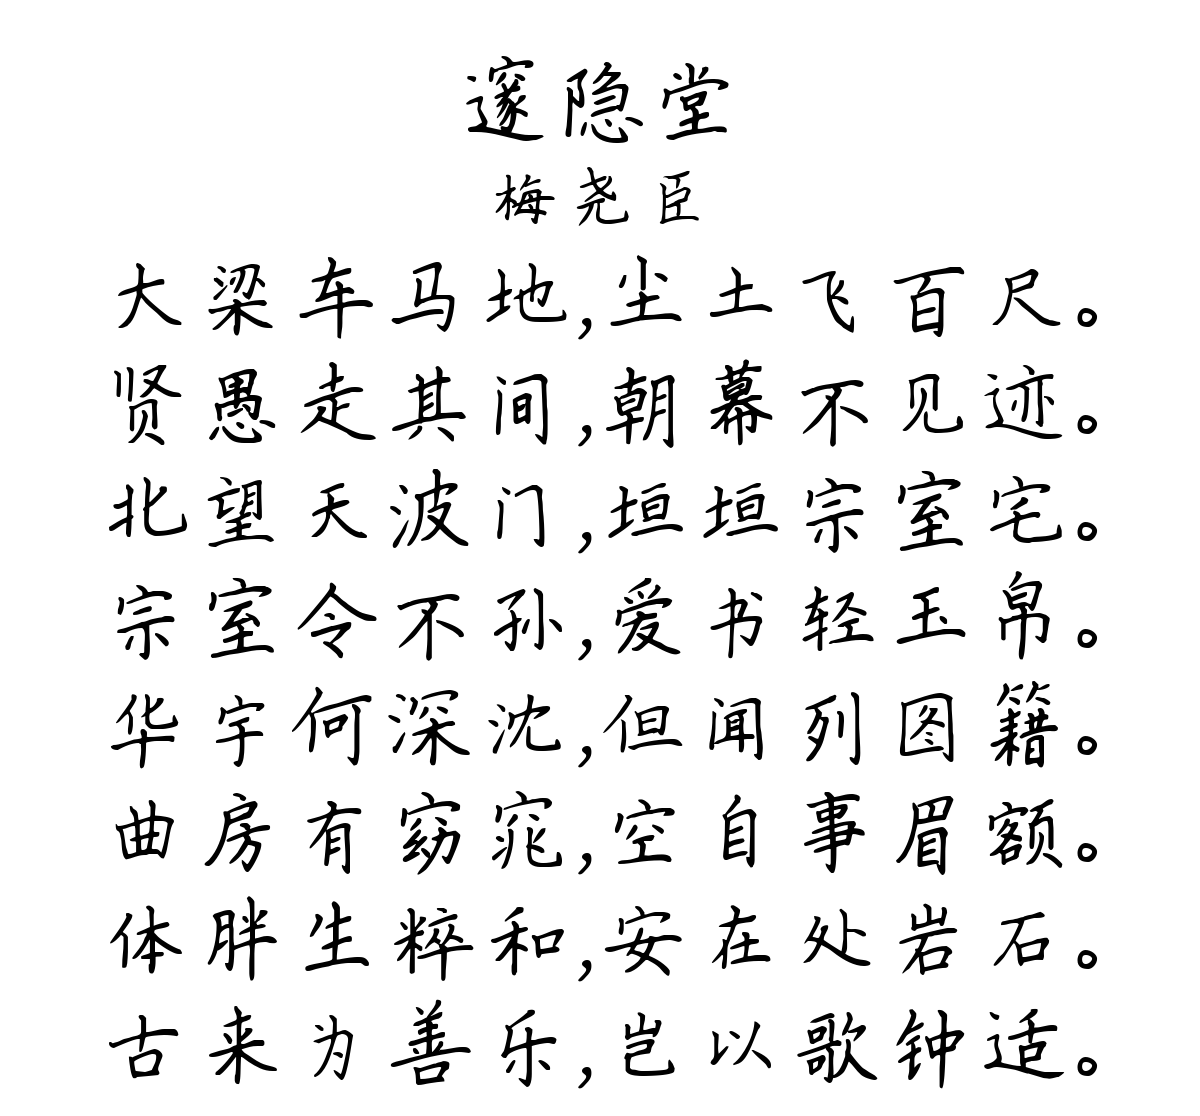 邃隐堂
梅尧臣
大梁车马地,尘土飞百尺。
贤愚走其间,朝幕不见迹。
北望天波门,垣垣宗室宅。
宗室令不孙,爱书轻玉帛。
华宇何深沈,但闻列图籍。
曲房有窈窕,空自事眉额。
体胖生粹和,安在处岩石。
古来为善乐,岂以歌钟适。